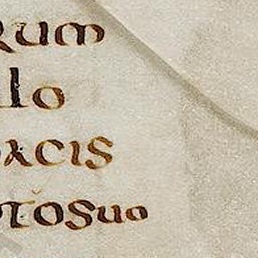 rum
lo
acis
tosuo